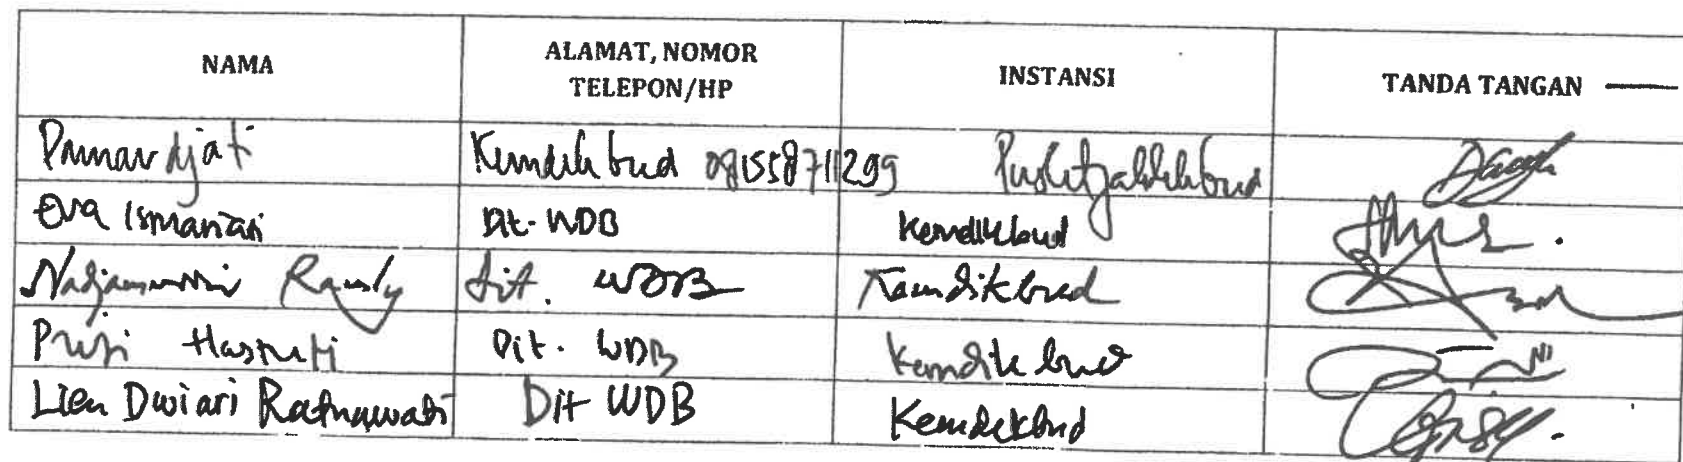 NAMA ALAMAT, NOMOR TELEPON/HP INSTANSI TANDA TANGAN
Kemdikbud 081558711299 Puslitjakdikbud
Eva Ismantari Dit. WDB Kemdikbud
Nadjamuddin Ramly Dit. WDB Kemdikbud
Puji Hastuti Dit. WDB Kemdikbud
Lien Dwiari Ratnawati Dit WDB Kemdikbud